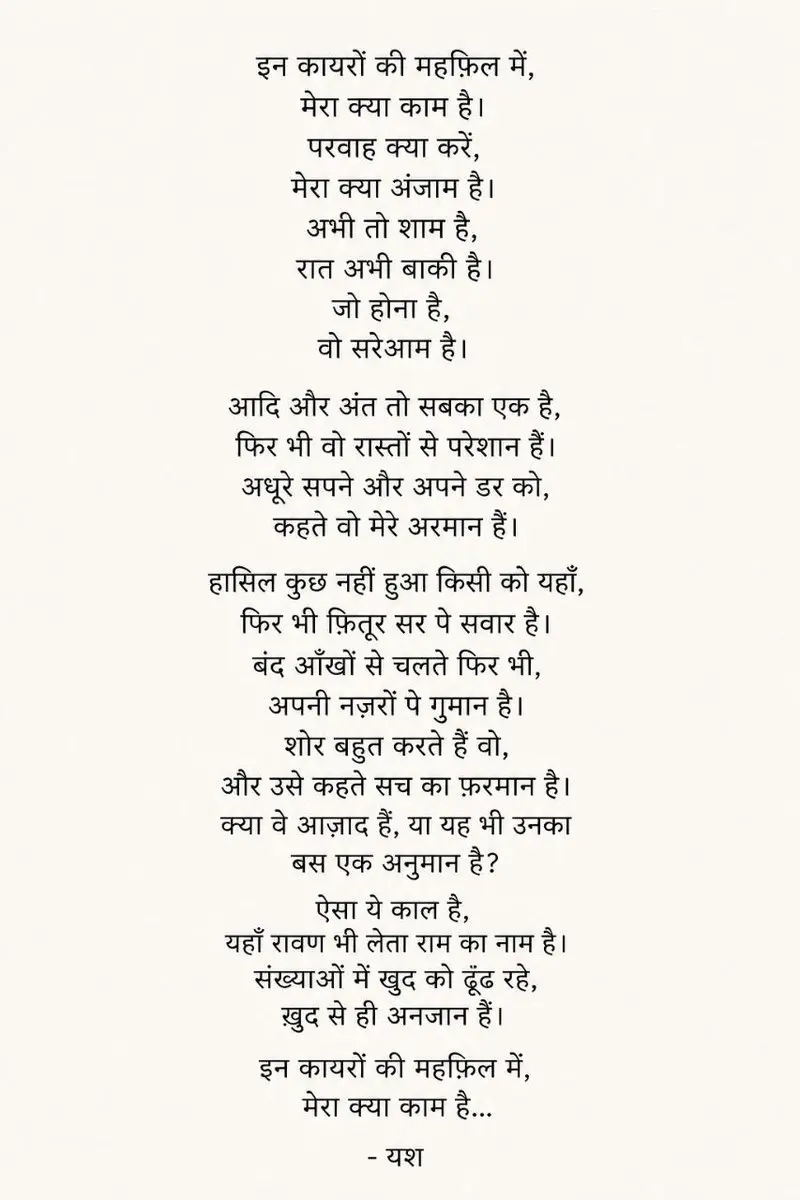 इन कायरों की महफ़िल में,
मेरा क्या काम है।
परवाह क्या करें,
मेरा क्या अंजाम है।
अभी तो शाम है,
रात अभी बाकी है।
जो होना है,
वो सरेआम है।
आदि और अंत तो सबका एक है,
फिर भी वो रास्तों से परेशान हैं।
अधूरे सपने और अपने डर को,
कहते वो मेरे अरमान हैं।
हासिल कुछ नहीं हुआ किसी को यहाँ,
फिर भी फ़ितूर सर पे सवार है।
बंद आँखों से चलते फिर भी,
अपनी नज़रों पे गुमान है।
शोर बहुत करते हैं वो,
और उसे कहते सच का फ़रमान है।
क्या वे आज़ाद हैं, या यह भी उनका
बस एक अनुमान है?
ऐसा ये काल है,
यहाँ रावण भी लेता राम का नाम है।
संख्याओं में खुद को ढूंढ रहे,
ख़ुद से ही अनजान हैं।
इन कायरों की महफ़िल में,
मेरा क्या काम है...
- यश